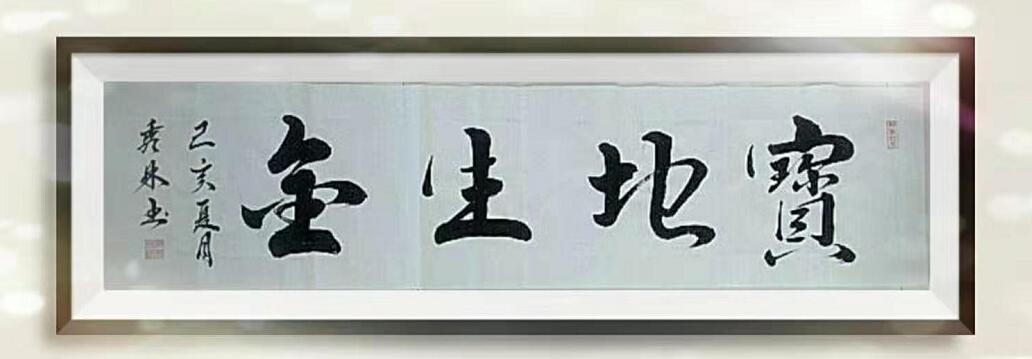 寶地生金
己亥夏月
秀林书